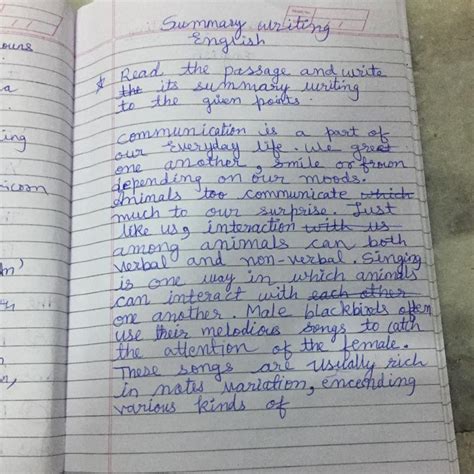 Summary writing
English
Read the passage and write
the its summary writing
to the given points.
communication is a part of
our everyday life. We greet
one another, smile or frown
depending on our moods.
Animals too communicate which
much to our surprise. Just
like us, interaction with us
among animals can both
verbal and non-verbal. Singing
is one way in which animals
can interact with each other
one another. Male blackbirds often
use their melodious songs to catch
the attention of the female.
These songs are usually rich
in notes variation, encending
various kinds of
ours
a
ing